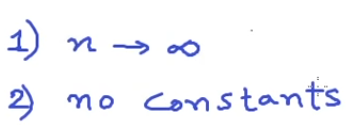 1) n → ∞
2) no constants